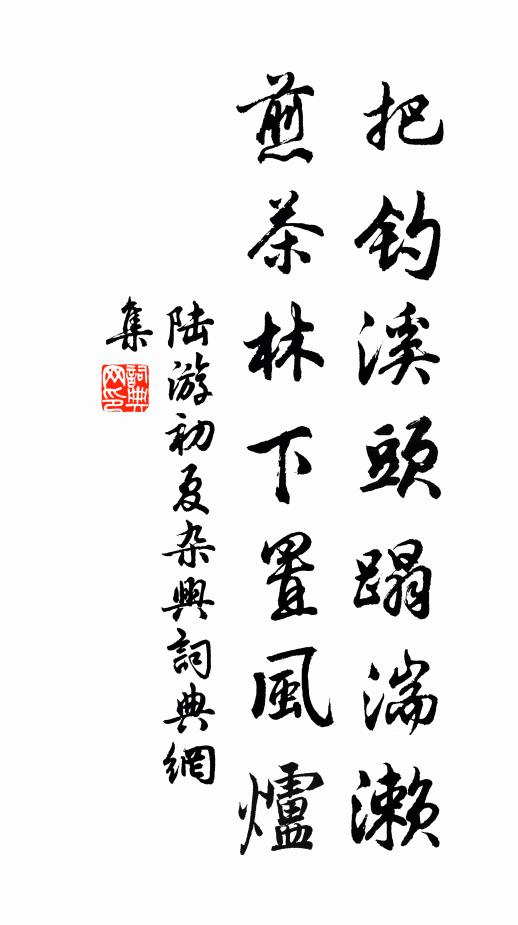 把钓溪頭蹋湍濑
煎茶林下置風爐
陆游初夏杂興詞典網
集
詞典网印